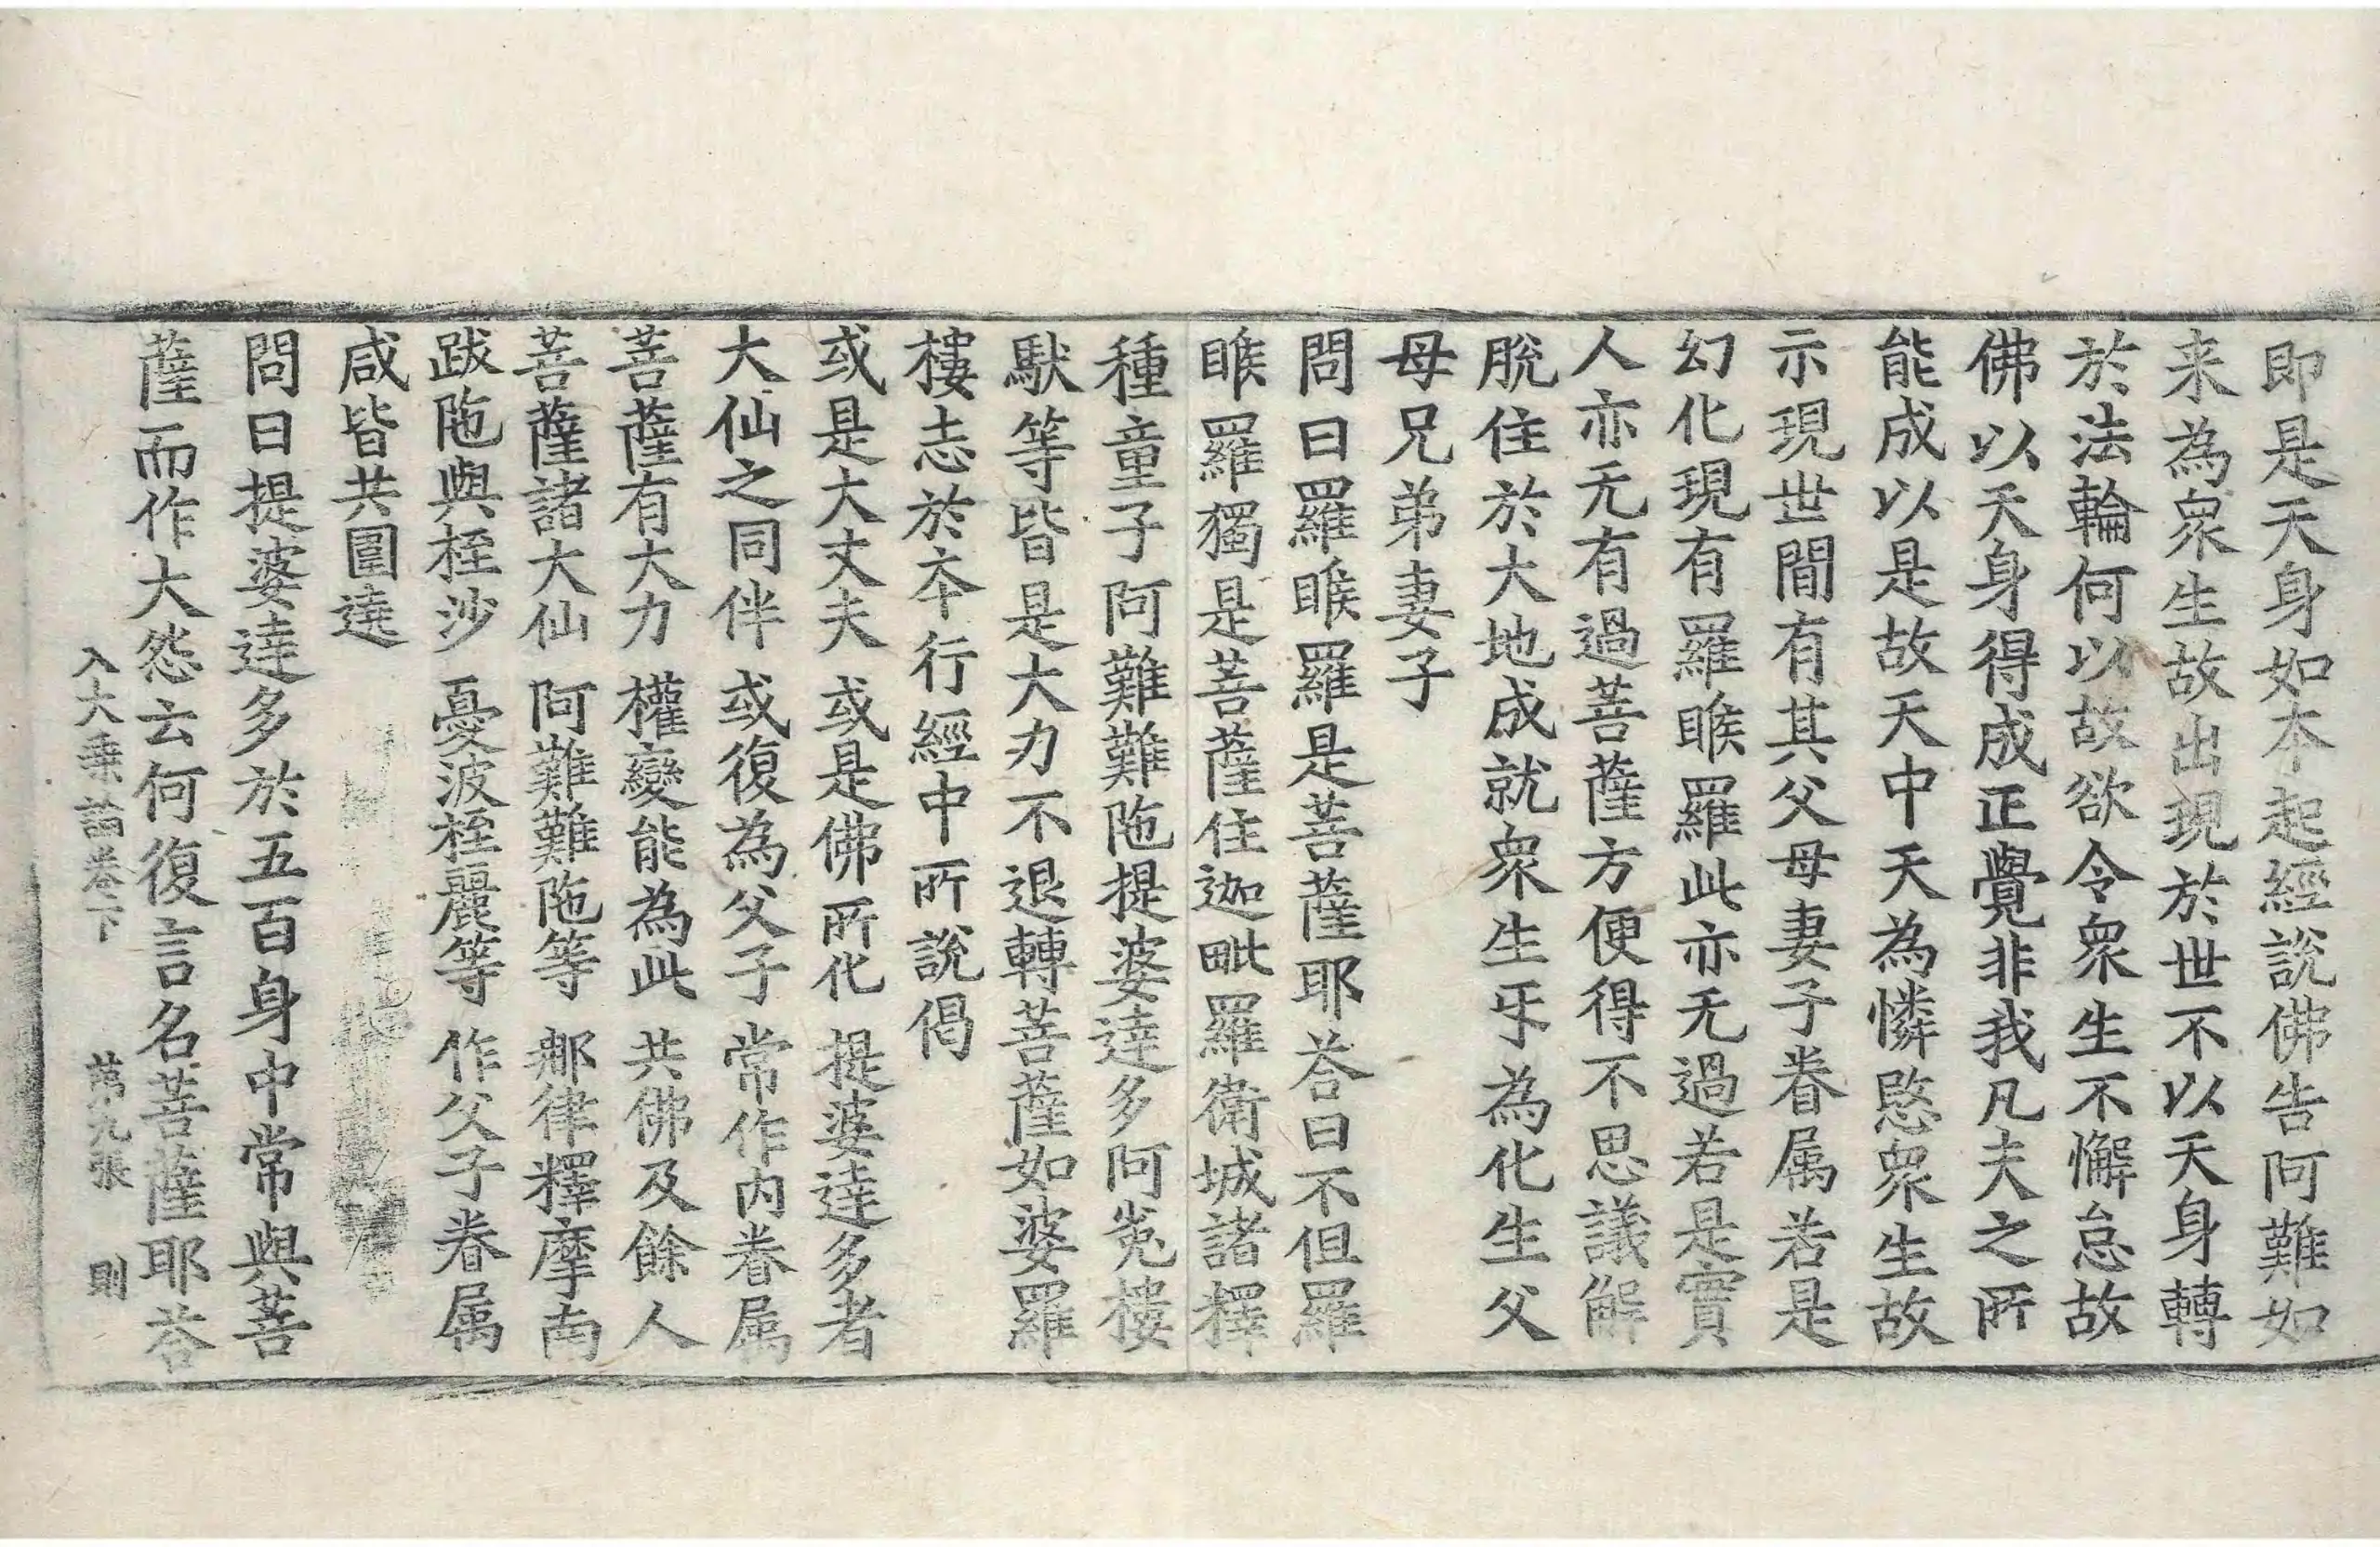 即是天身如本起經說佛告阿難如
来為衆生故出現於世不以天身轉
於法輪何以故欲令衆生不懈怠故
佛以天身得成正覺非我凡夫之所
能成以是故天中天為憐愍衆生故
示現世間有其父母妻子眷属若是
幻化現有羅睺羅此亦无過若是實
人亦无有過菩薩方便得不思議解
脫住於大地成就衆生牙為化生父
母兄弟妻子
問曰羅睺羅是菩薩耶荅曰不但羅
睺羅獨是菩薩住迦毗羅衛城諸釋
種童子阿難難陁提婆達多阿㝹樓
馱等皆是大力不退轉菩薩如婆羅
樓志於夲行經中所說偈
或是大丈夫 或是佛所化 提婆達多者
大仙之同伴 或復為父子 常作内眷属
菩薩有大力 權變能為此 共佛及餘人
菩薩諸大仙 阿難難陁等 那律釋摩南
跋陁與桎沙 憂波桎麗等 作父子眷属
咸皆共圍遶
問曰提婆達多於五百身中常與菩
薩而作大怨云何復言名菩薩耶荅
入大乗論卷下 第九張 則